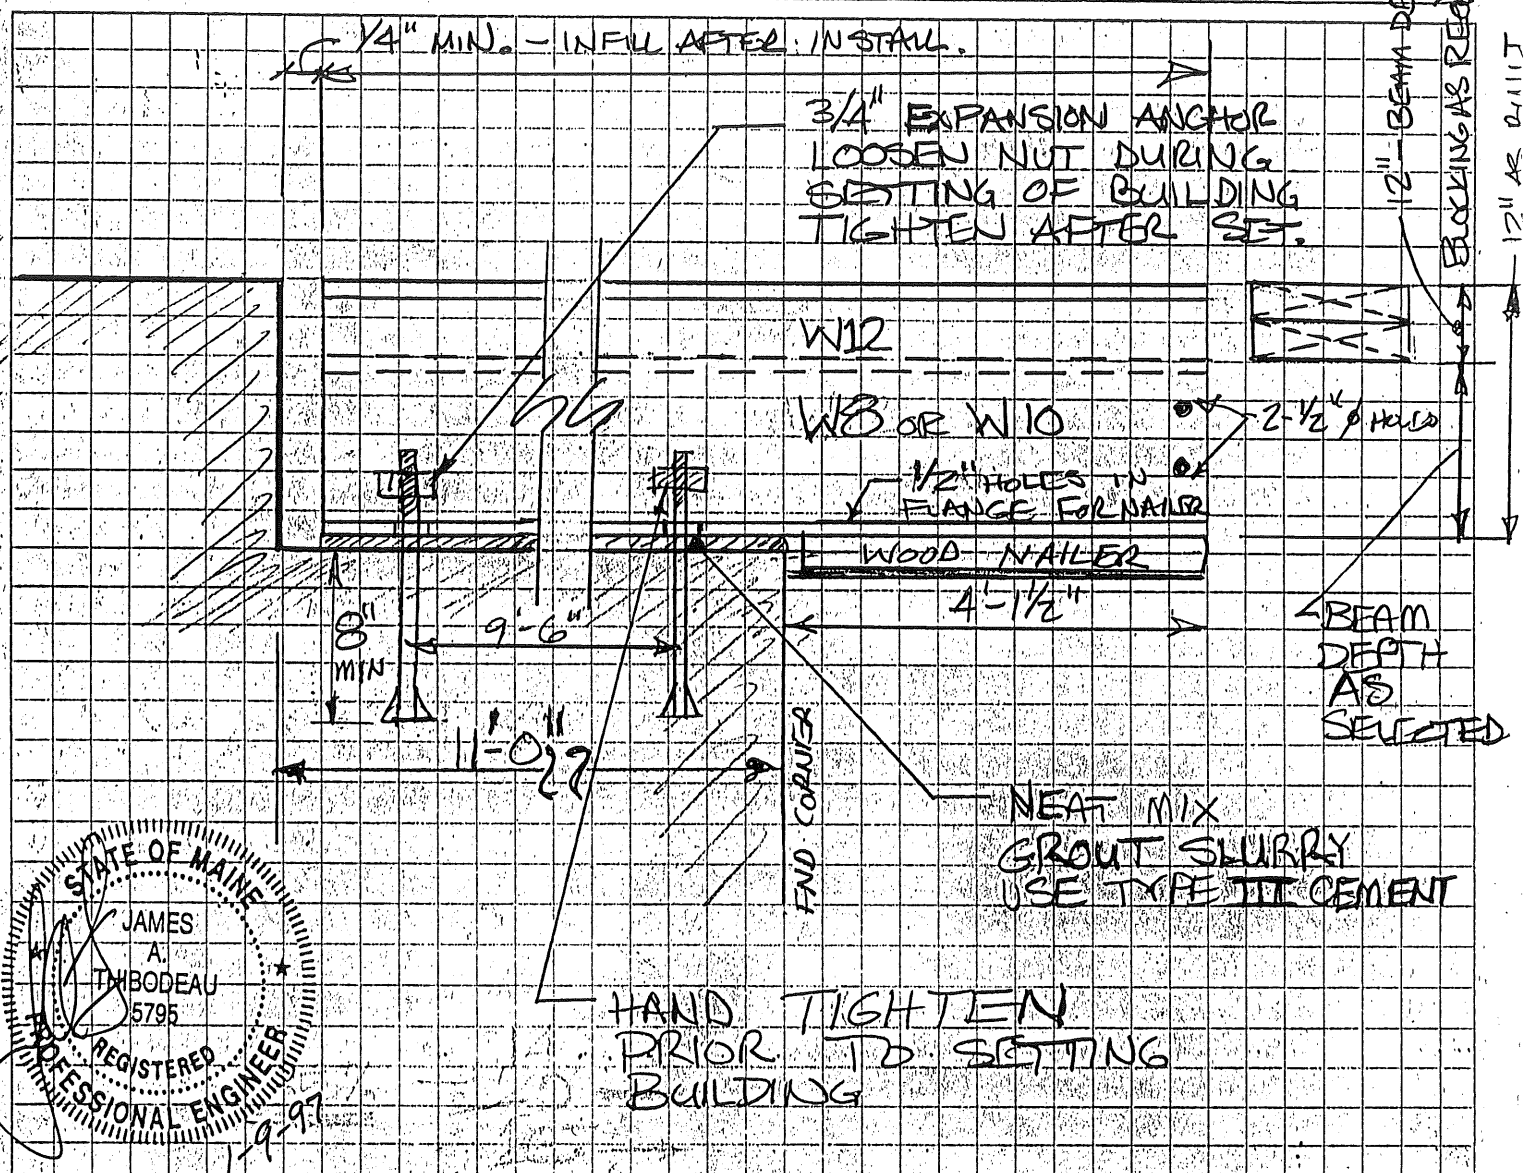 1/4" MIN. - INFILL AFTER INSTALL.
3/4" EXPANSION ANCHOR
LOOSEN NUT DURING
SETTING OF BUILDING
TIGHTEN AFTER SET.
12" - BEAM
BLOCKING AS
12" AS BUILT
W12
W8 OR W10
2-1/2" φ HOLES
1/2" HOLES IN
FLANGE FOR NAILER
WOOD NAILER
4'-1 1/2"
8"
MIN
9'-6"
11'-0"
??
FND CORNER
BEAM
DEPTH
AS
SELECTED
NEAT MIX
GROUT SLURRY
USE TYPE III CEMENT
HAND TIGHTEN
PRIOR TO SETTING
BUILDING
STATE OF MAINE
JAMES
A.
THIBODEAU
5795
REGISTERED
PROFESSIONAL ENGINEER
1-9-97